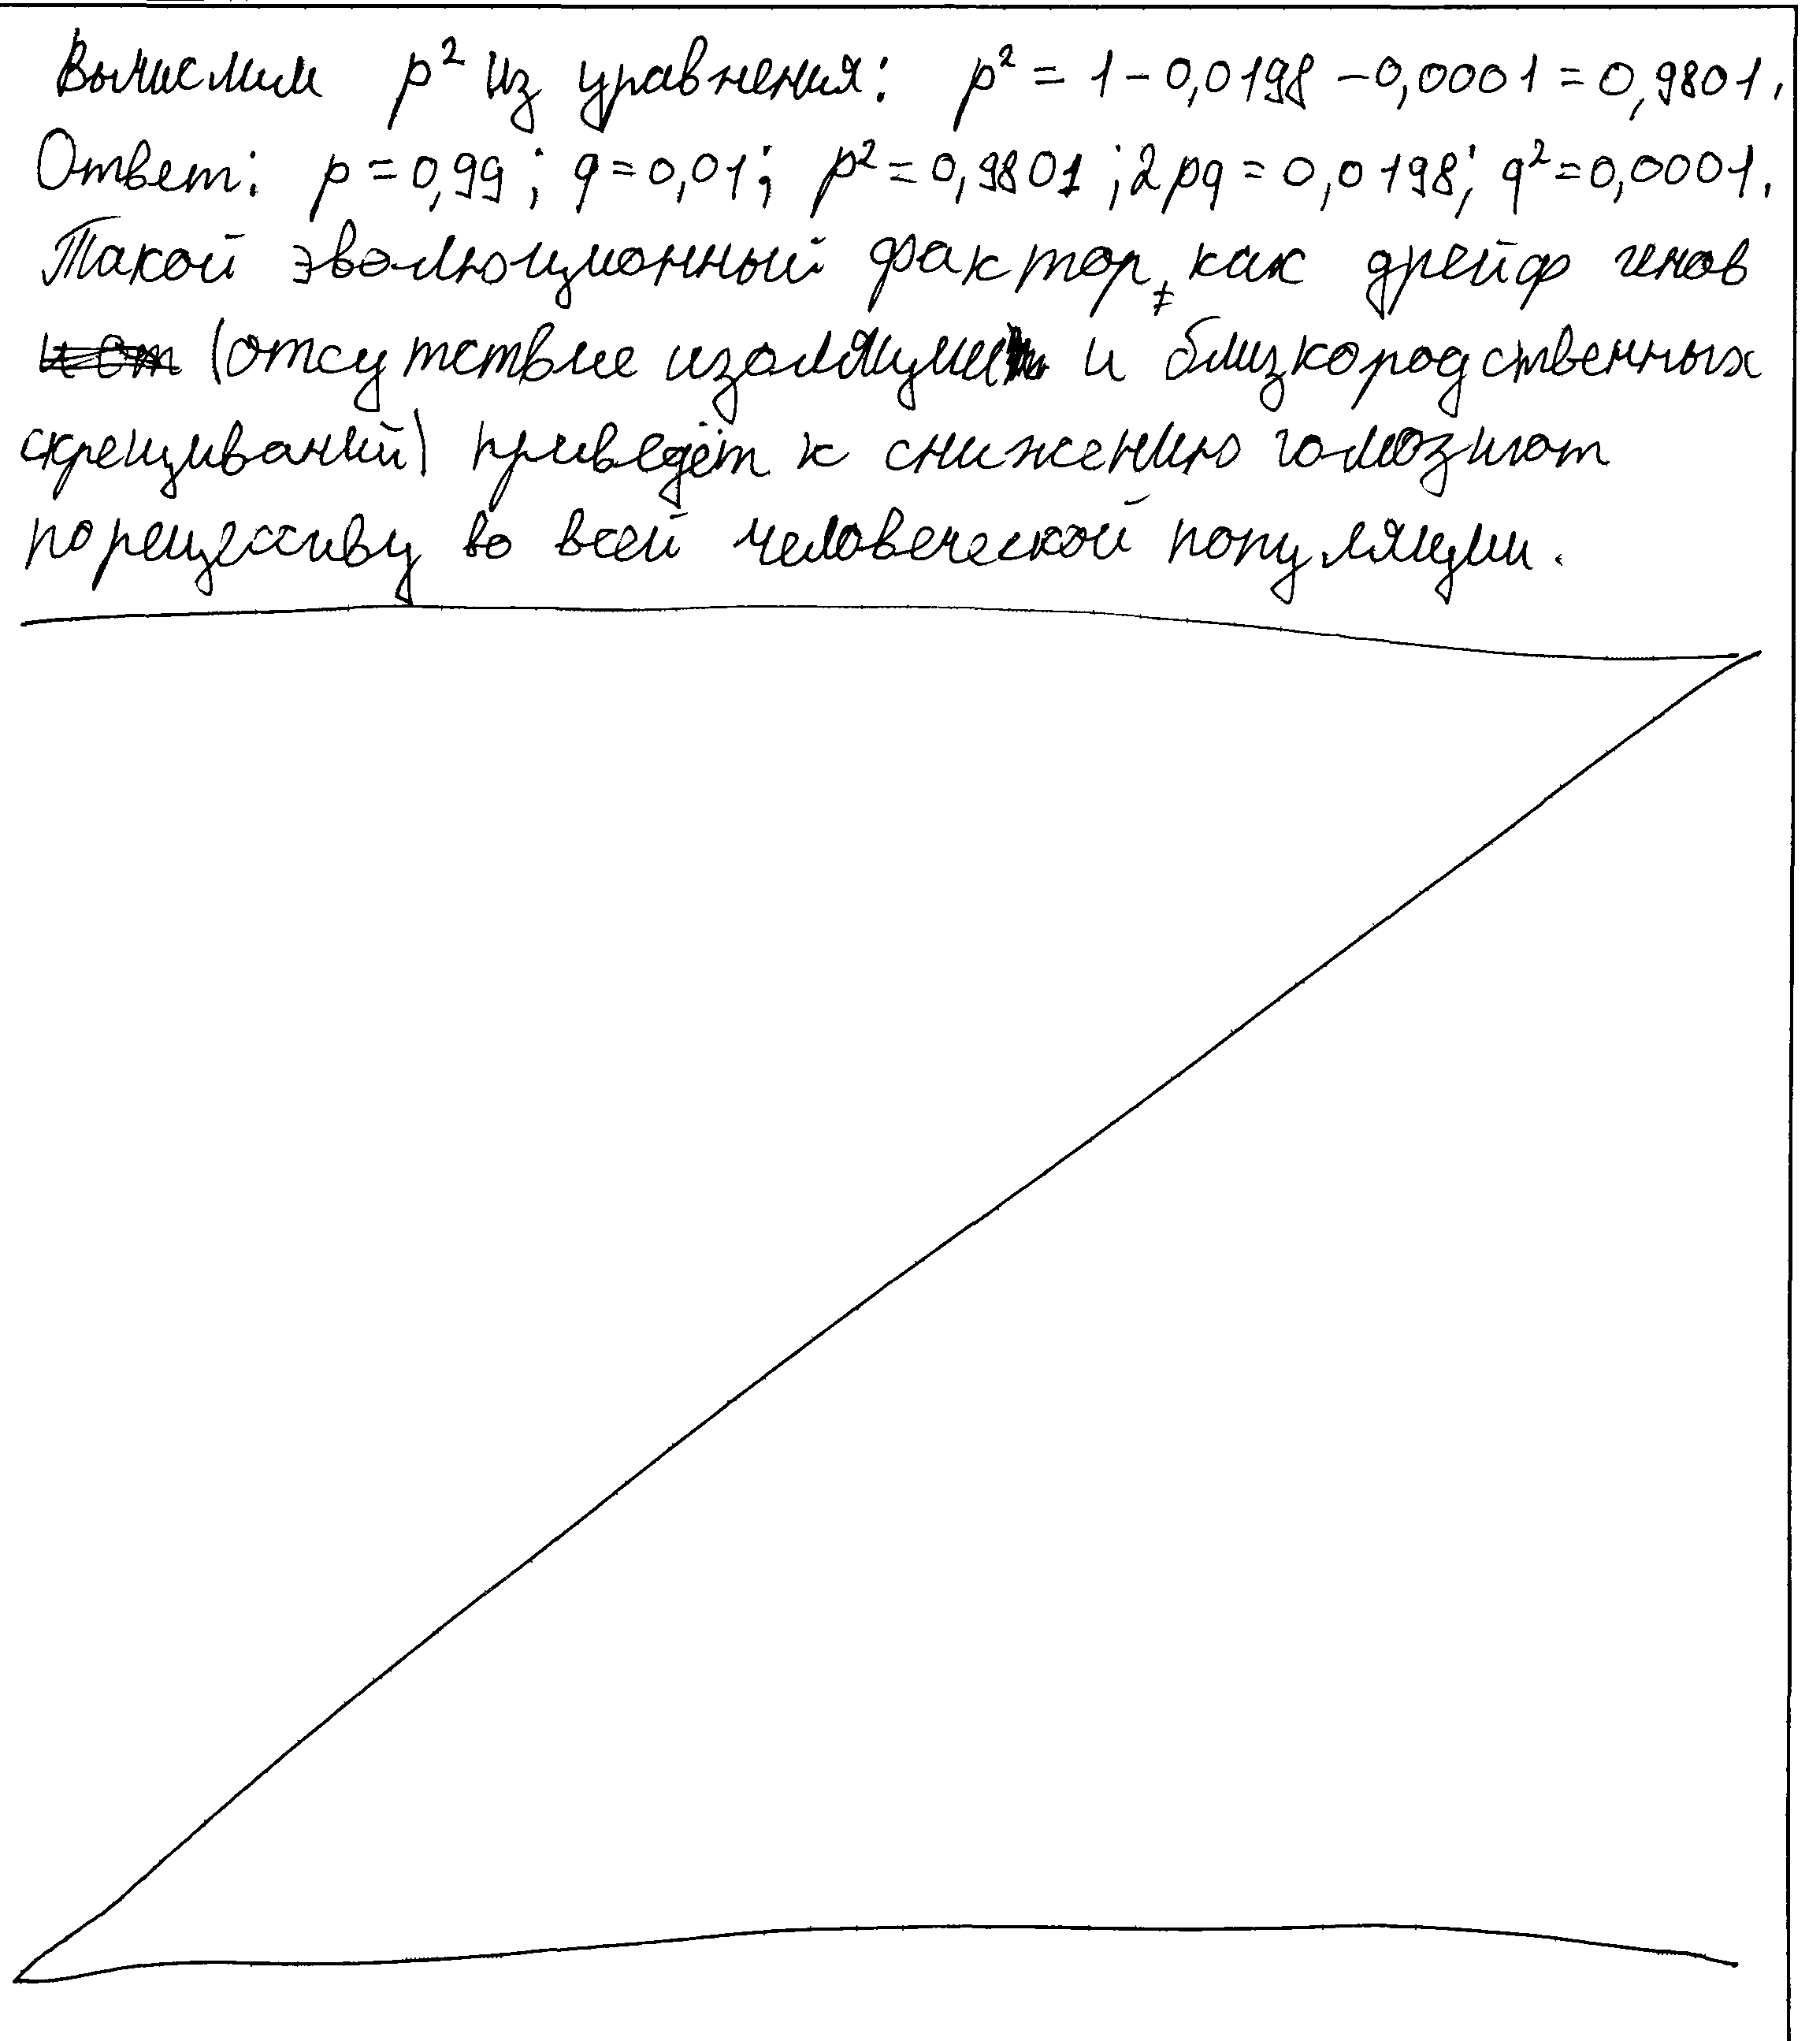 Вычислим p² из уравнения: p² = 1 – 0,0198 – 0,0001 = 0,9801.
Ответ: p = 0,99; q = 0,01; p² = 0,9801; 2pq = 0,0198; q² = 0,0001.
Такой эволюционный фактор, как дрейф генов
(отсутствие изоляции и близкородственных
скрещиваний) приведёт к снижению гомозигот
по рецессиву во всей человеческой популяции.